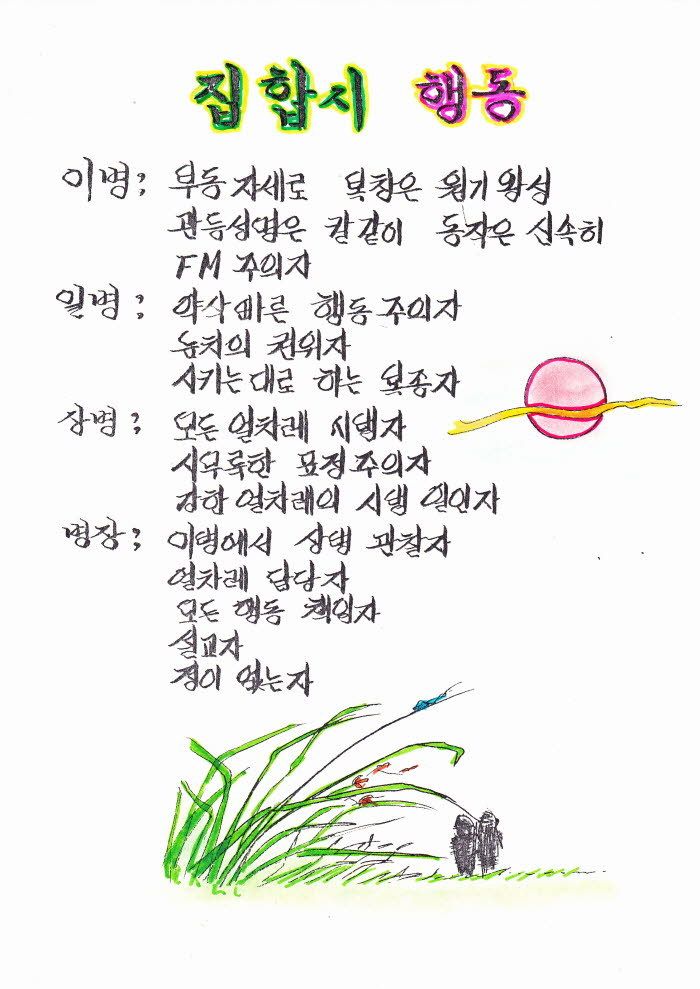 집합시 행동
이병; 부동자세로 복창은 원기왕성
관등성명은 칼같이 동작은 신속히
FM 주의자
일병; 약삭빠른 행동주의자
눈치의 권위자
시키는대로 하는 복종자
상병; 모든 얼차레 시행자
시무룩한 표정주의자
강한 얼차레의 시행 일인자
병장; 이병에서 상병 관찰자
얼차레 담당자
모든 행동 책임자
설교자
정이 없는자